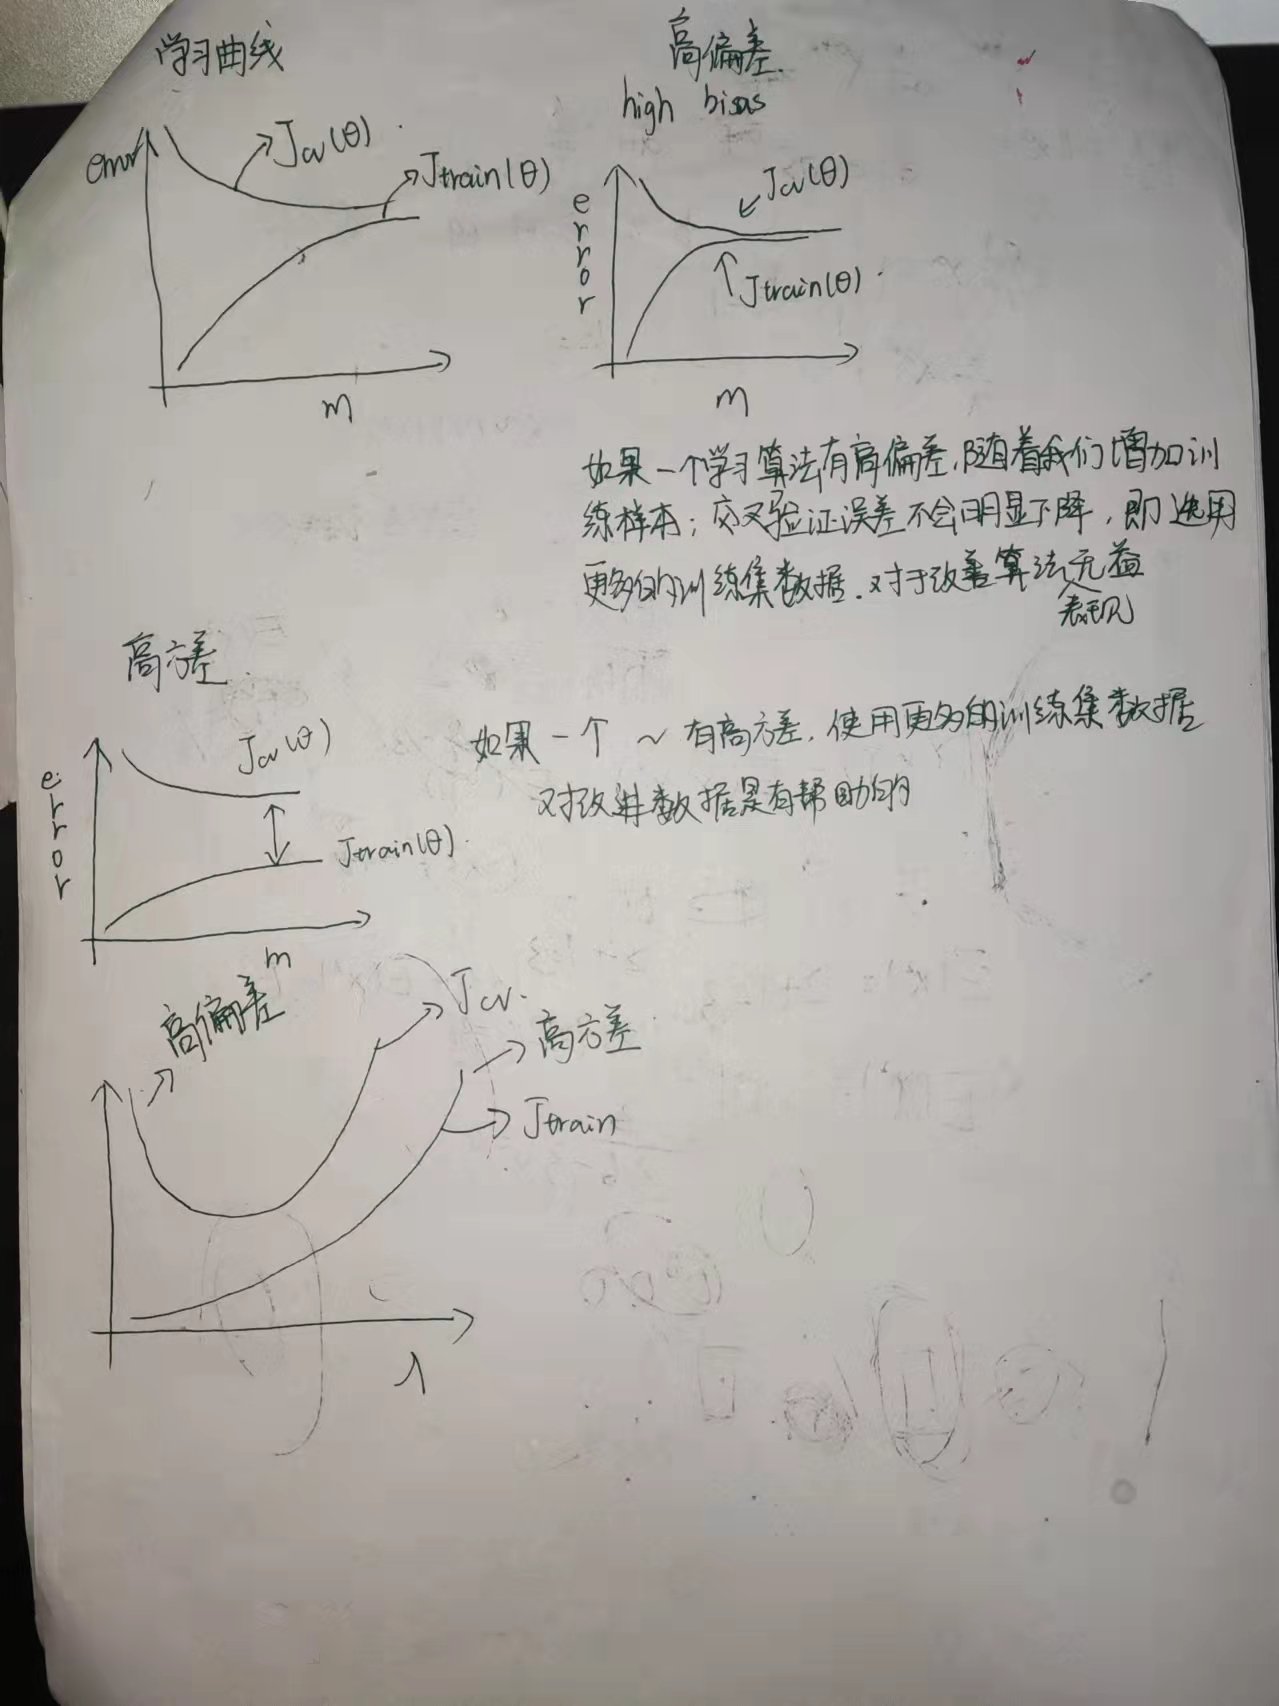 学习曲线
error
Jcv(θ)
Jtrain(θ)
m
高偏差
high bisas
error
Jcv(θ)
Jtrain(θ)
m
如果一个学习算法有高偏差,随着我们增加训
练样本;交叉验证误差不会明显下降,即选用
更多的训练集数据.对于改善算法无益
表现
高方差
error
Jcv(θ)
Jtrain(θ)
m
如果一个 ~ 有高方差,使用更多的训练集数据
对改进数据是有帮助的
高偏差
Jcv.
高方差
Jtrain
λ